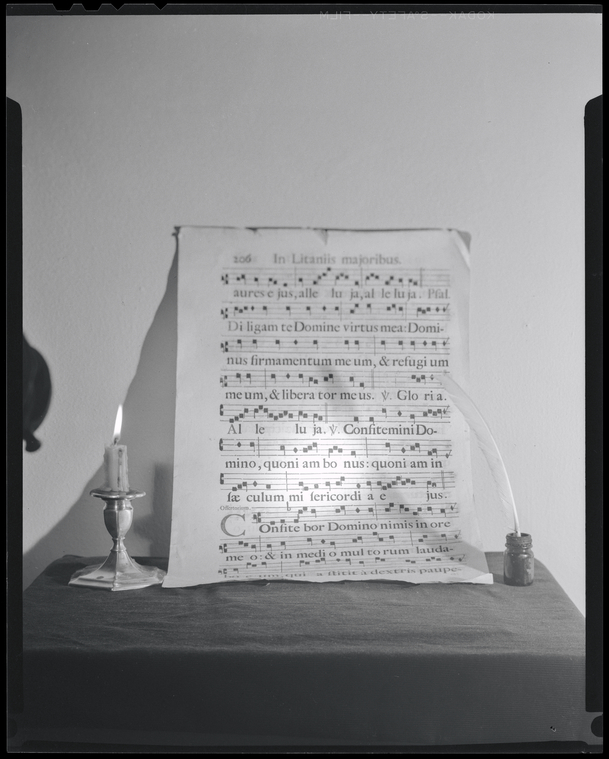 KODAK SAFETY FILM
206 In Litaniis majoribus.
aures e jus, alle lu ja, al le lu ja. Psal.
Di ligam te Domine virtus mea: Domi-
nus firmamentum me um, & refugi um
me um, & libera tor me us. ℣. Glo ri a.
Al le lu ja. ℣. Confitemini Do-
mino, quoni am bo nus: quoni am in
sæ culum mi sericordi a e jus.
Offertorium.
COnfite bor Domino nimis in ore
me o: & in medi o mul to rum lauda-
qui a stitit à dextris paupe-